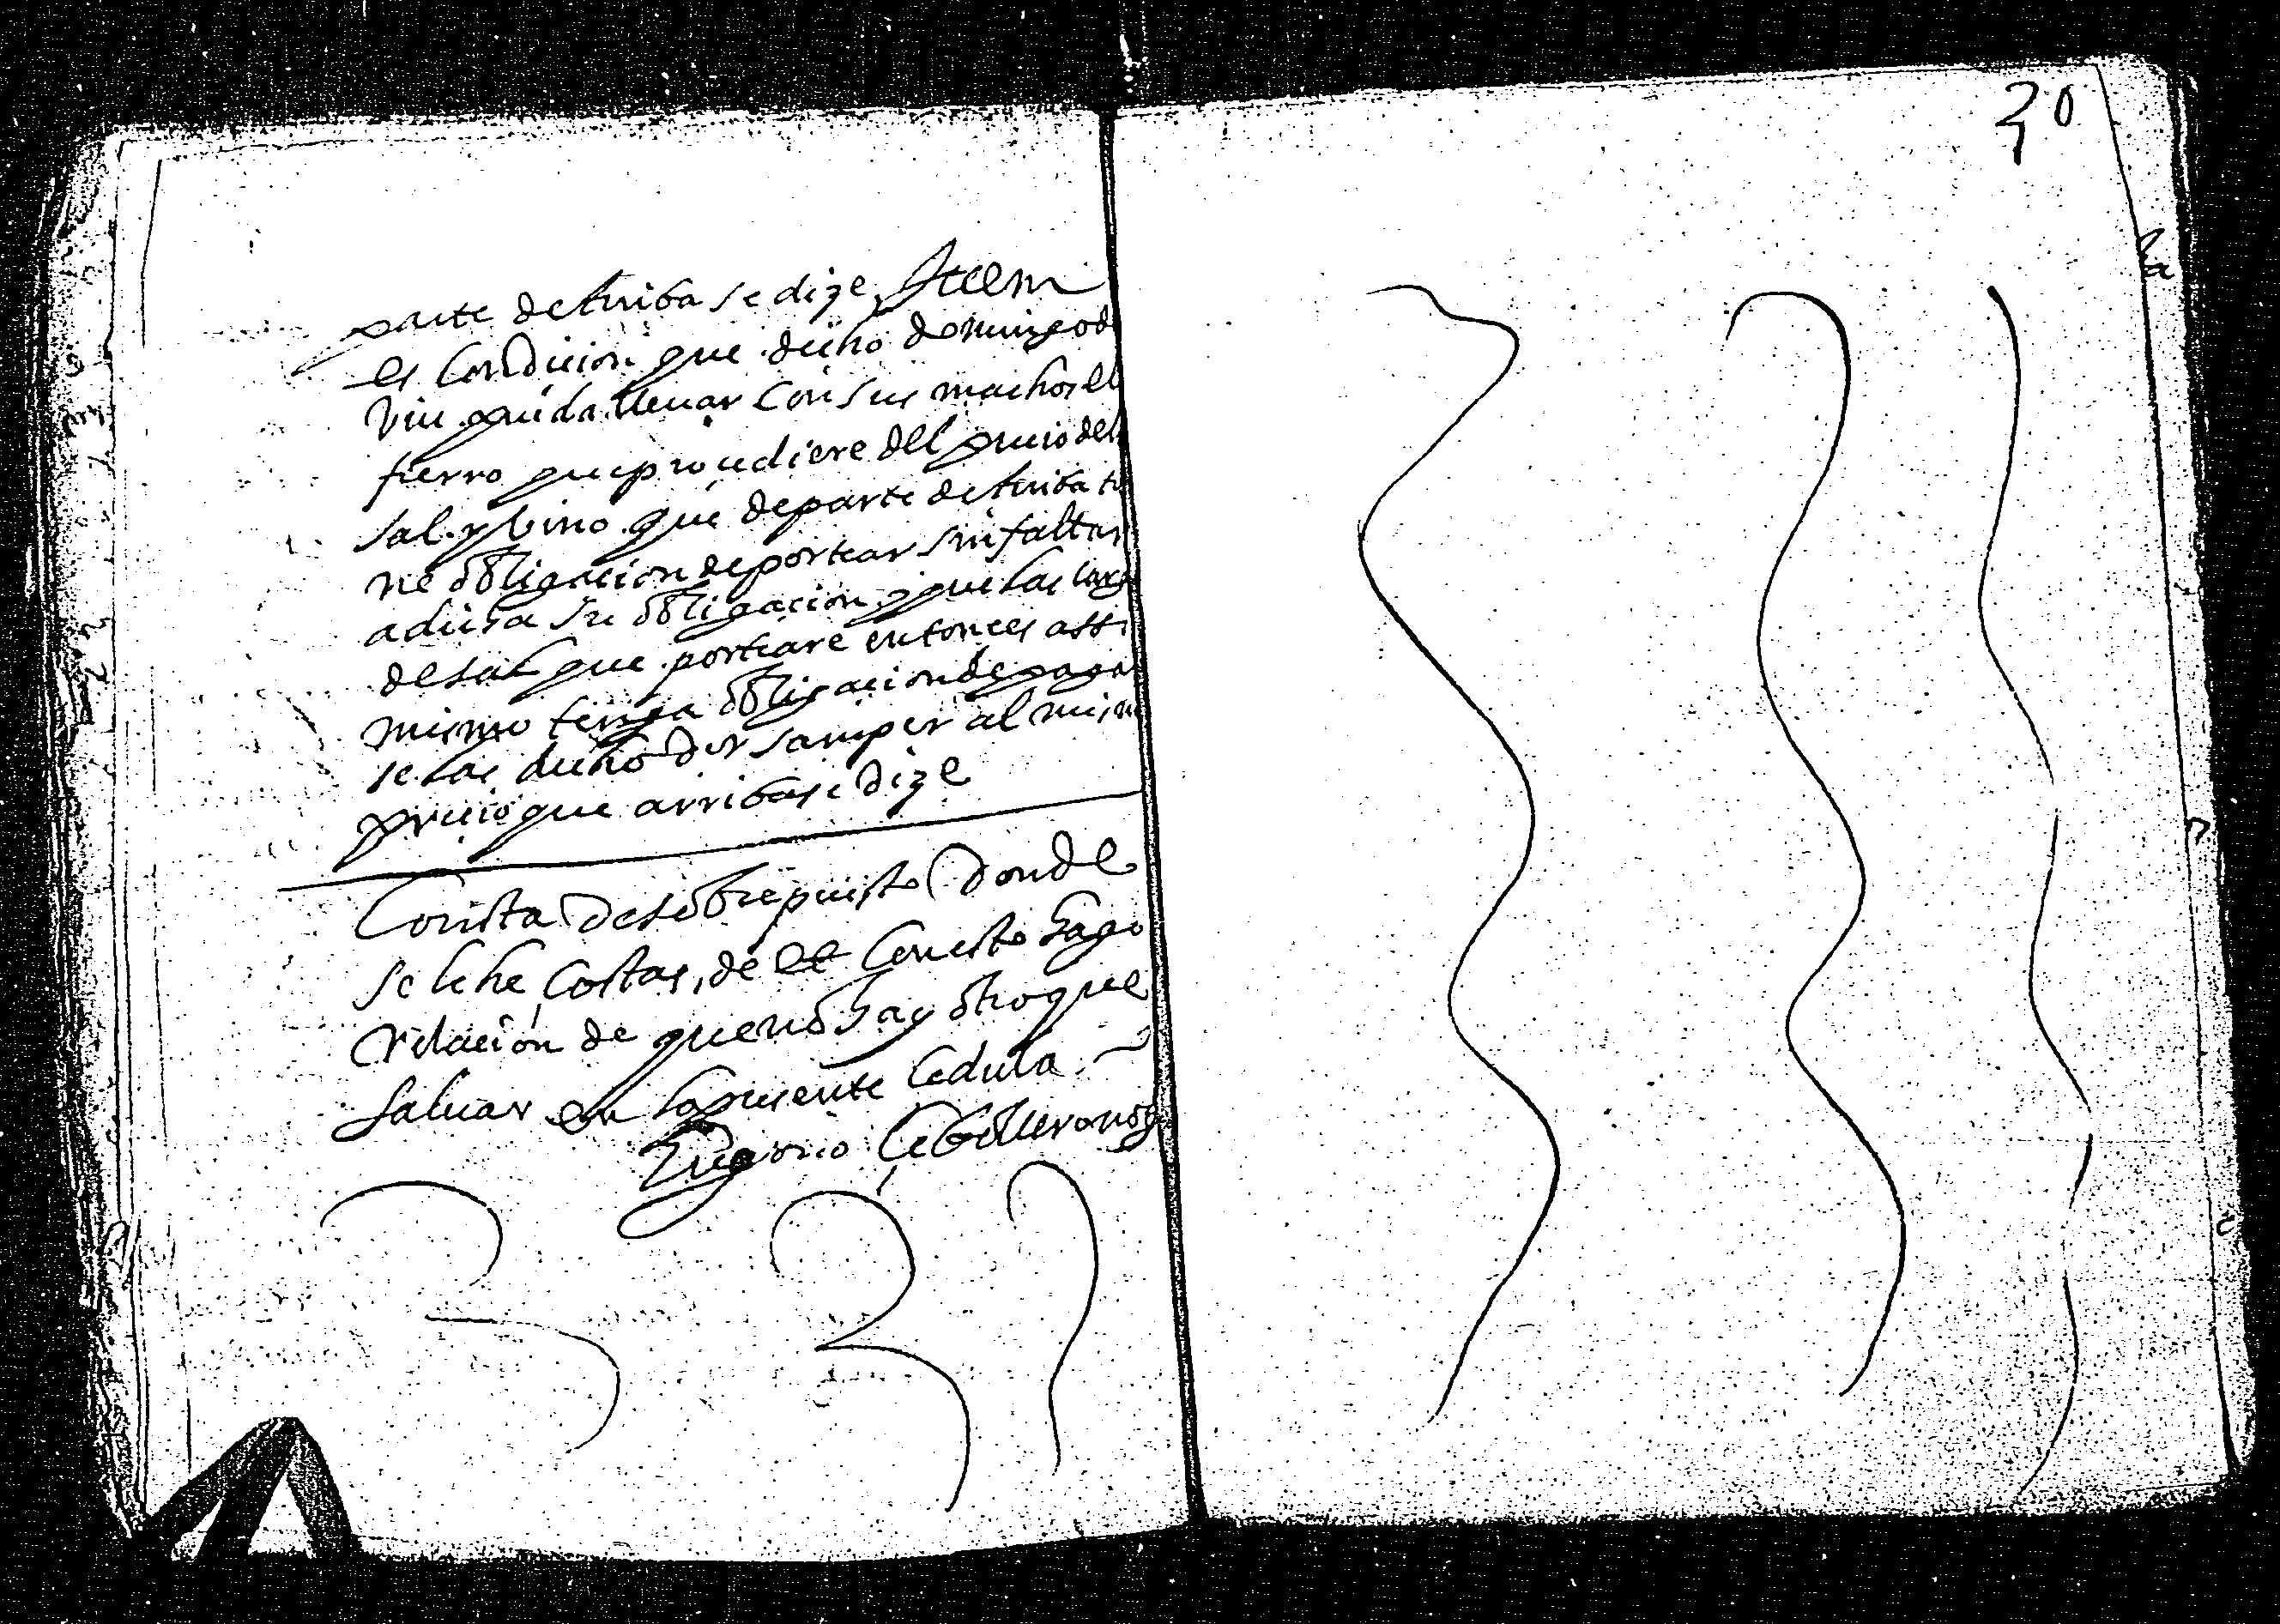 parte de arriba se dize, Ittem
es Condicion que dicho domingo de
viu pueda lleuar Con sus machos el
fierro que procediere del precio del
sal y vino que de parte de arriba tie
ne obligacion de portear sin faltar
a dicha su obligacion y que las carg
de sal que porteare entonces assi
mismo tenga obligacion de pagar
selas dicho de samper al mism
precio que arriba se dize
Consta de sobrepuesto donde
se lehe Costas, de et Con esto hago
relacion de que no hay otro que
saluar en la presente Cedula
Cebollero
20